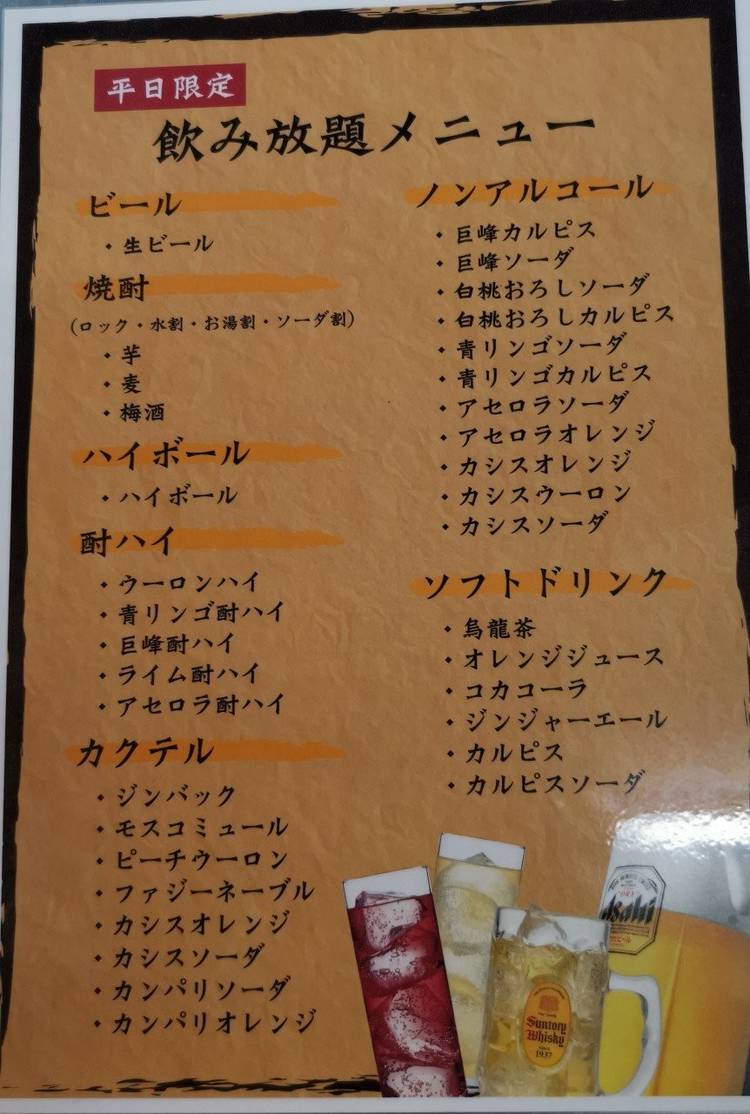 平日限定
飲み放題メニュー
ビール
・生ビール
焼酎
(ロック・水割・お湯割・ソーダ割)
・芋
・麦
・梅酒
ハイボール
・ハイボール
酎ハイ
・ウーロンハイ
・青リンゴ酎ハイ
・巨峰酎ハイ
・ライム酎ハイ
・アセロラ酎ハイ
カクテル
・ジンバック
・モスコミュール
・ピーチウーロン
・ファジーネーブル
・カシスオレンジ
・カシスソーダ
・カンパリソーダ
・カンパリオレンジ
ノンアルコール
・巨峰カルピス
・巨峰ソーダ
・白桃おろしソーダ
・白桃おろしカルピス
・青リンゴソーダ
・青リンゴカルピス
・アセロラソーダ
・アセロラオレンジ
・カシスオレンジ
・カシスウーロン
・カシスソーダ
ソフトドリンク
・烏龍茶
・オレンジジュース
・コカコーラ
・ジンジャーエール
・カルピス
・カルピスソーダ
Asahi
Suntory
Whisky
SINCE
1937